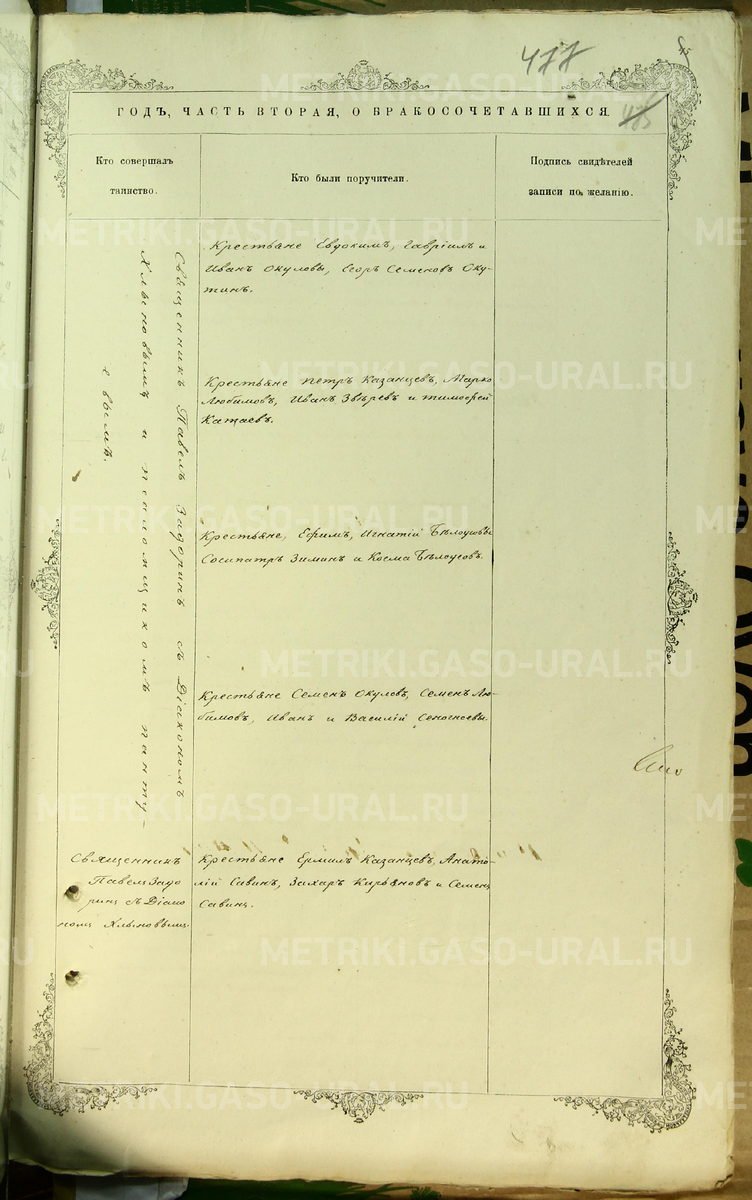 477
485
ГОДЪ, ЧАСТЬ ВТОРАЯ, О БРАКОСОЧЕТАВШИХСЯ.
Кто совершалъ
таинство.
Кто были поручители.
Подпись свидѣтелей
записи по желанію.
Священникъ Павелъ Задоринъ съ Діакономъ
Хлыновымъ и псаломщикомъ Панту-
евымъ.
Крестьяне Евдокимъ, Гавріилъ и
Иванъ Окуловы, Егоръ Семеновъ Оку-
тинъ.
Крестьяне Петръ Казанцевъ, Марко
Любимовъ, Иванъ Звѣревъ и Тимофей
Катаевъ.
Крестьяне, Ефимъ, Игнатій Бѣлоусовы
Сосипатръ Зиминъ и Косма Бѣлоусовъ.
Крестьяне Семенъ Окуловъ, Семенъ Лю-
бимовъ, Иванъ и Василій Сеногноевы.
Священникъ
Павелъ Задо
ринъ съ Діако
номъ Хлыновымъ
Крестьяне Ермилъ Казанцевъ, Анато-
лій Савинъ, Захаръ Кирьяновъ и Семенъ
Савинъ.
METRIKI.GASO-URAL.RU
METRIKI.GASO-URAL.RU
METRIKI.GASO-URAL.RU
METRIKI.GASO-URAL.RU
METRIKI.GASO-URAL.RU
METRIKI.GASO-URAL.RU
METRIKI.GASO-URAL.RU